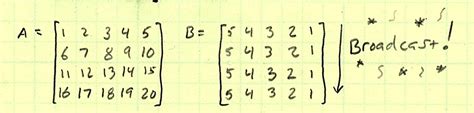 A = [1 2 3 4 5 B = [5 4 3 2 1
6 7 8 9 10 5 4 3 2 1 Broadcast!
11 12 13 14 15 5 4 3 2 1
16 17 18 19 20] 5 4 3 2 1]